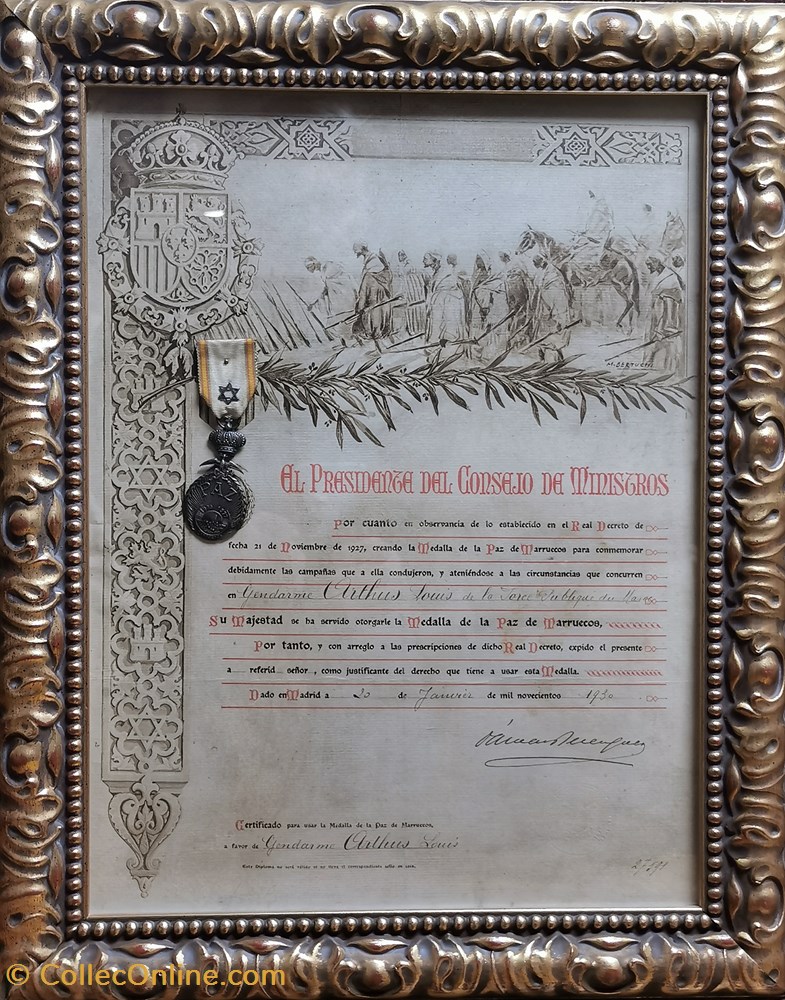 M. BERTUCHI
PAZ
El Presidente del Consejo de Ministros
Por cuanto en observancia de lo establecido en el Real Decreto de
fecha 21 de Noviembre de 1927, creando la Medalla de la Paz de Marruecos para conmemorar
debidamente las campañas que a ella condujeron, y ateniéndose a las circunstancias que concurren
en Gendarme Arthus Louis de la Force Publique du Maroc
Su Majestad se ha servido otorgarle la Medalla de la Paz de Marruecos,
Por tanto, y con arreglo a las prescripciones de dicho Real Decreto, expido el presente
a referid señor, como justificante del derecho que tiene a usar esta Medalla.
Dado en Madrid a 20 de Janvier de mil novecientos 1930
Certificado para usar la Medalla de la Paz de Marruecos,
a favor de Gendarme Arthus Louis
Este Diploma no será válido si no tiene el correspondiente sello en seco.
© CollecOnline.com